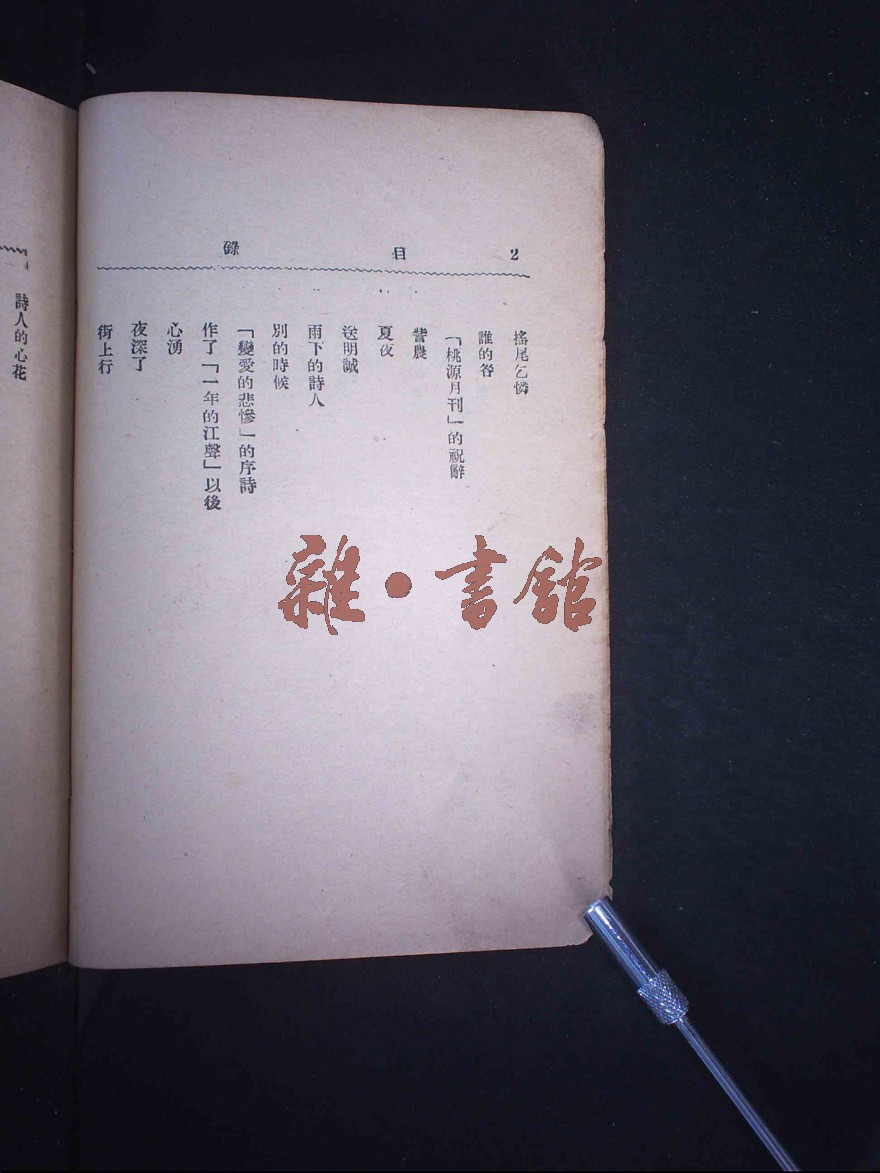 2 目 錄
搖尾乞憐
誰的咎
「桃源月刊」的祝辭
訾農
夏夜
送明誠
雨下的詩人
別的時候
「變愛的悲慘」的序詩
作了「一年的江聲」以後
心湧
夜深了
街上行
詩人的心花
雜·書館